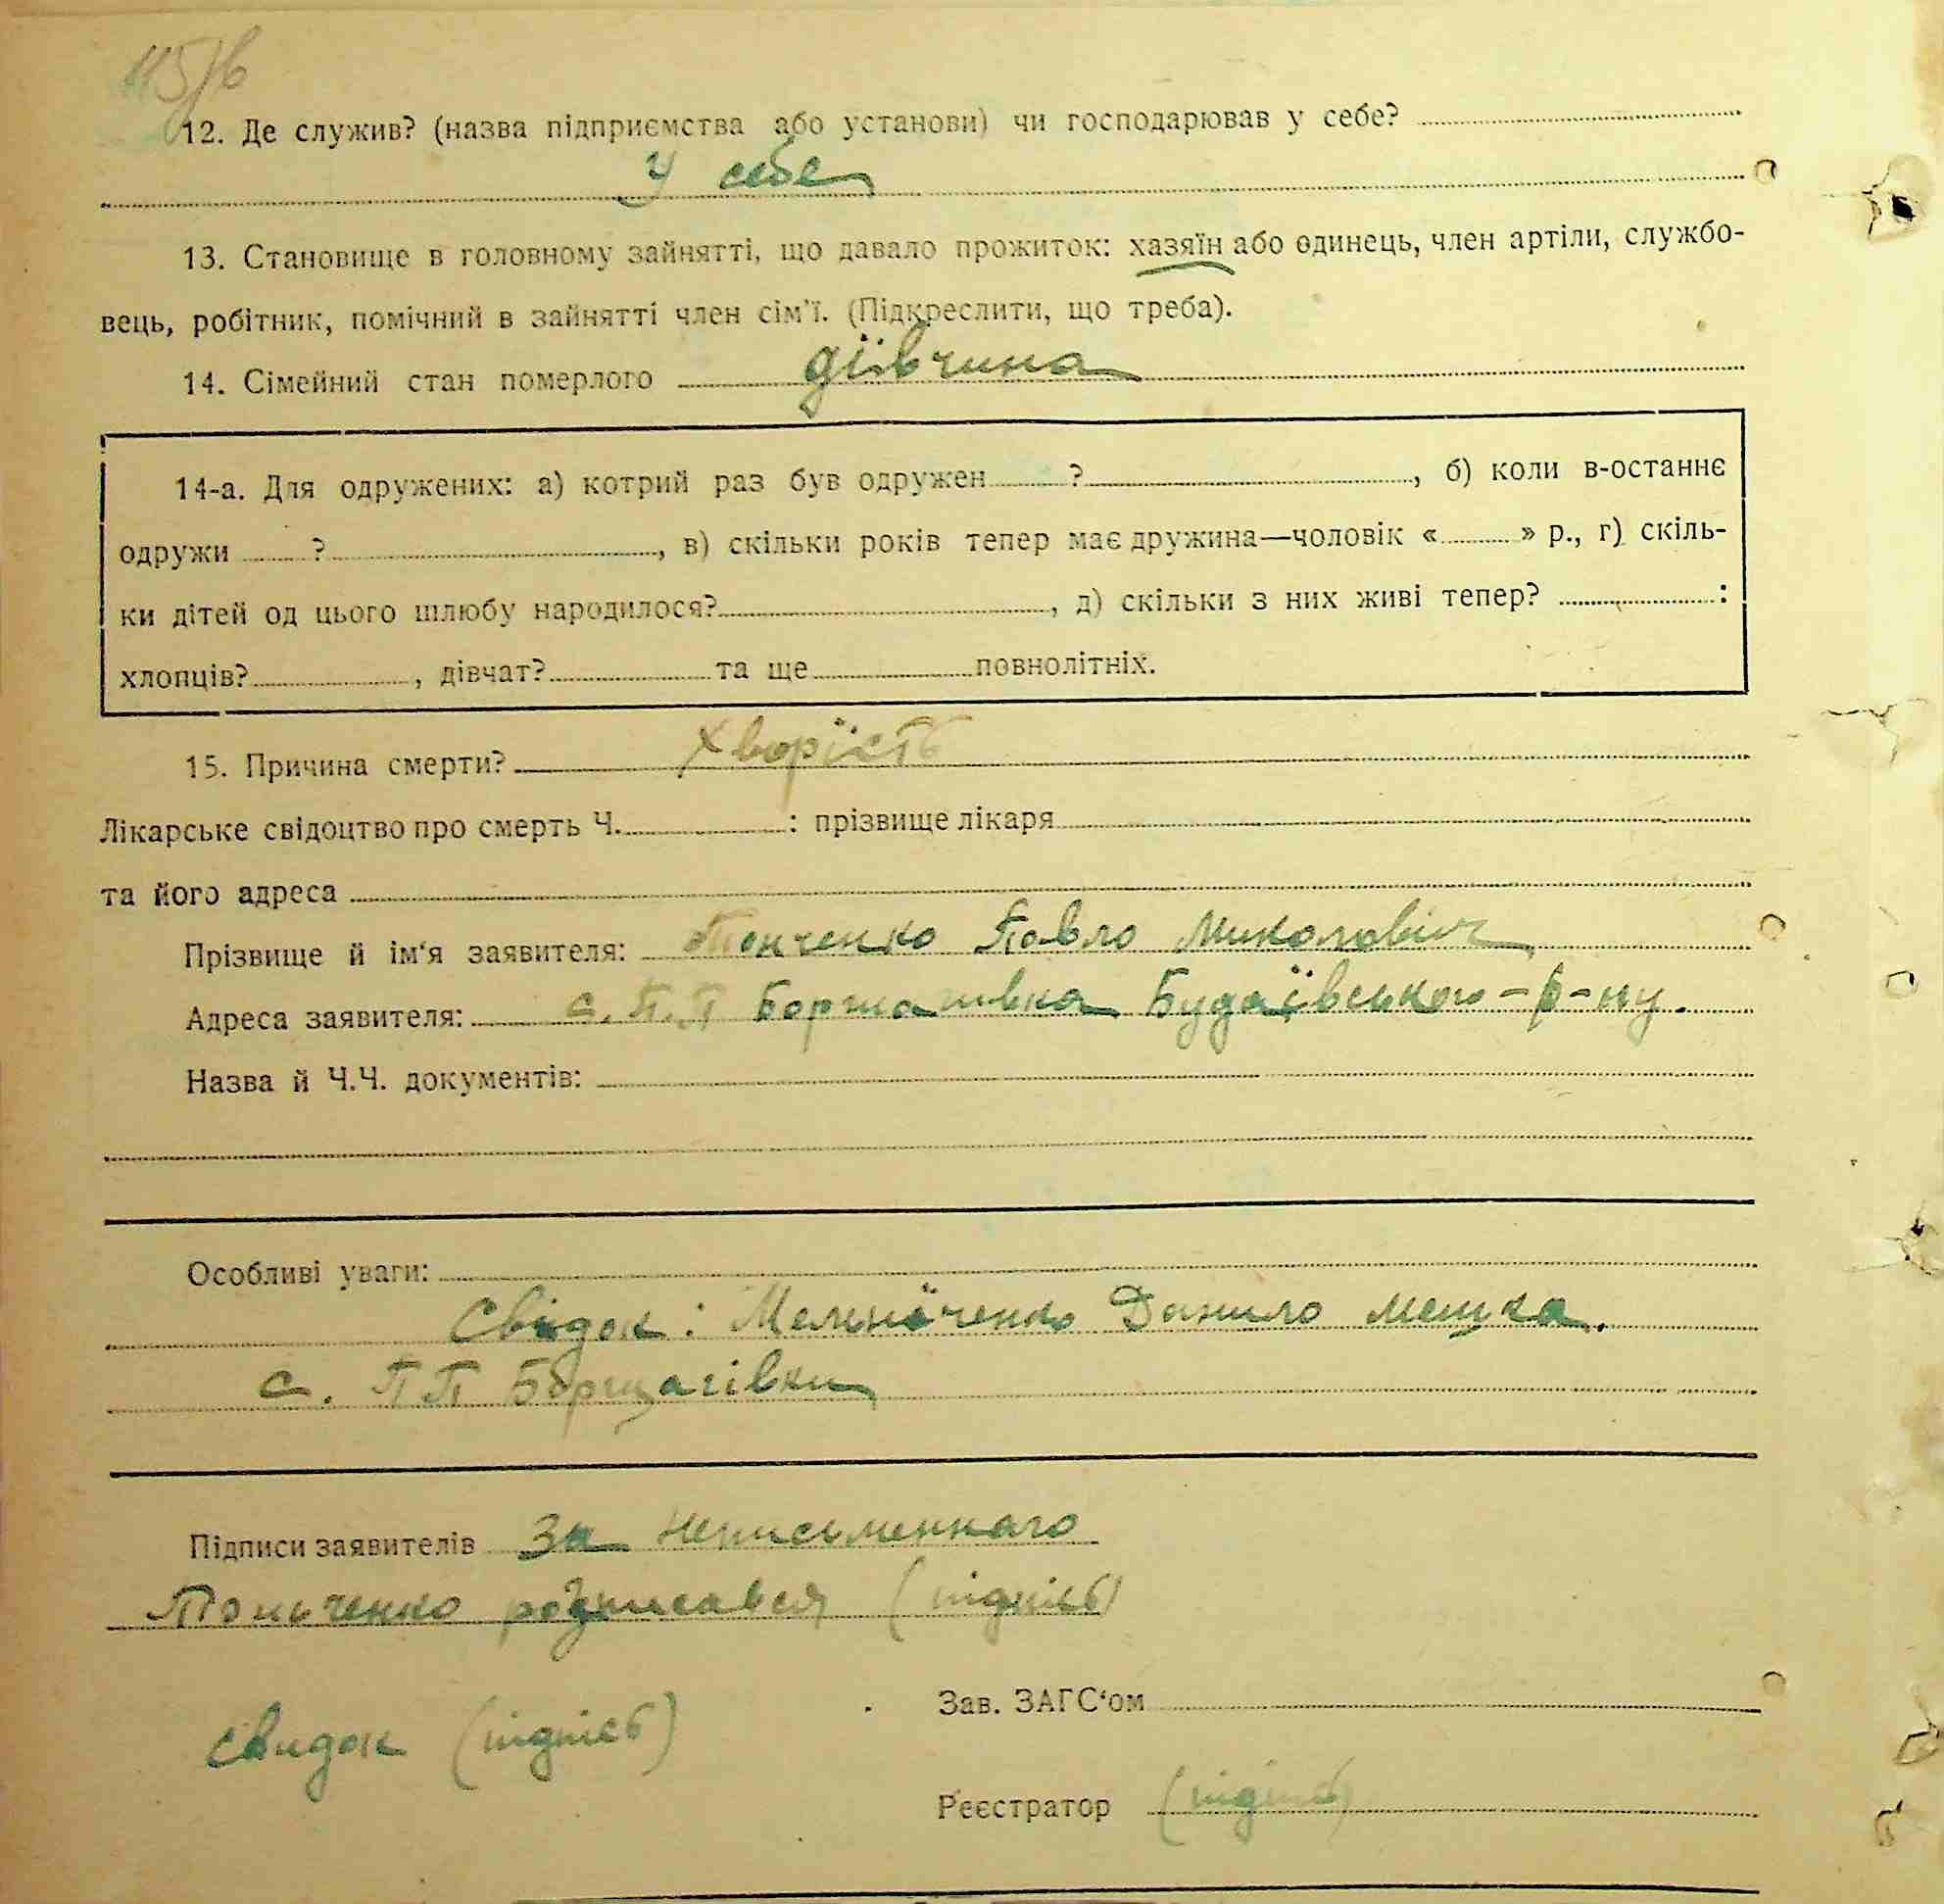 115/в
12. Де служив? (назва підприємства або установи) чи господарював у себе?
У себе
13. Становище в головному зайнятті, що давало прожиток: хазяїн або одинець, член артіли, службо-
вець, робітник, помічний в зайнятті член сім'ї. (Підкреслити, що треба).
14. Сімейний стан померлого дівчина
14-а. Для одружених: а) котрий раз був одружен ?, б) коли в-останнє
одружи ?, в) скільки років тепер має дружина—чоловік « » р., г) скіль-
ки дітей од цього шлюбу народилося?, д) скільки з них живі тепер? :
хлопців?, дівчат? та ще повнолітніх.
15. Причина смерти? Хворість
Лікарське свідоцтво про смерть Ч. : прізвище лікаря
та його адреса
Прізвище й ім'я заявителя: Павло Миколович
Адреса заявителя: с. П.П Будаївського-р-ну.
Назва й Ч.Ч. документів:
Особливі уваги:
Свідок: Данило мешка.
с. ПП Борщагівки
Підписи заявителів За неписьменного
розписався (підпісь)
Зав. ЗАГС'ом
свидок (підпісь)
Реєстратор (підпісь)